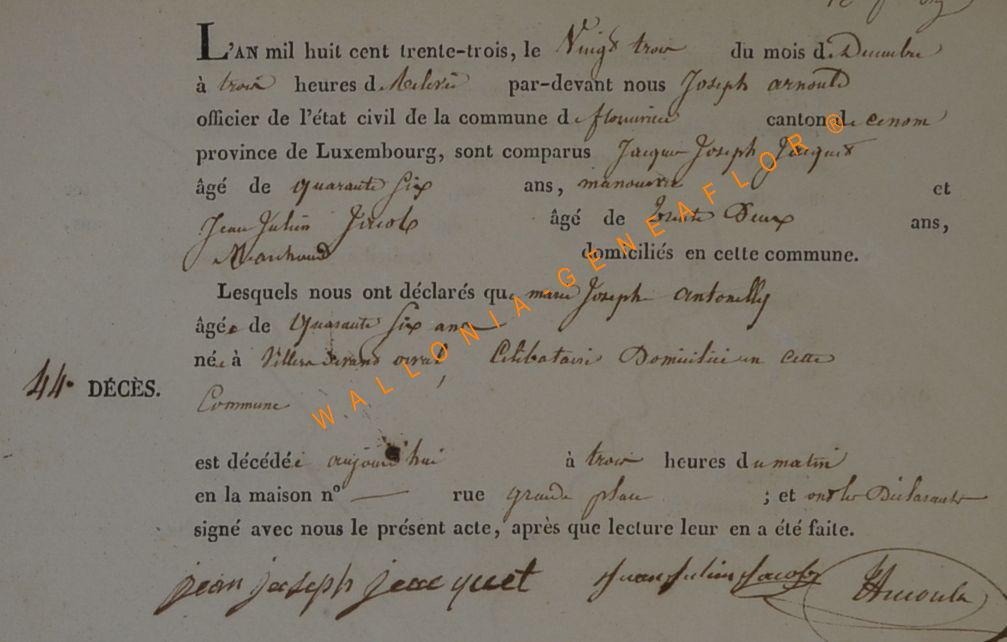 L'AN mil huit cent trente-trois, le Vingt trois du mois de Decembre
à trois heures de Relevée par-devant nous Joseph arnould
officier de l'état civil de la commune de florenville canton de
province de Luxembourg, sont comparus Jacque Joseph Jacquet
âgé de quarante Six ans, manouvrier et
Jean Julien Jacob âgé de trente Deux ans,
Marchand domiciliés en cette commune.
Lesquels nous ont déclarés que marie Joseph antonelly
âgée de Quarante Six ans
née à Villers devant orval, Celibataire Domiciliée en cette
44. DÉCÈS.
Commune
est décédée aujourd'hui à trois heures du matin
en la maison n° — rue grande place ; et ont les Déclarants
signé avec nous le présent acte, après que lecture leur en a été faite.
jean joseph jacquet Jean Julien Jacob
WALLONIA-GENEAFLOR ®